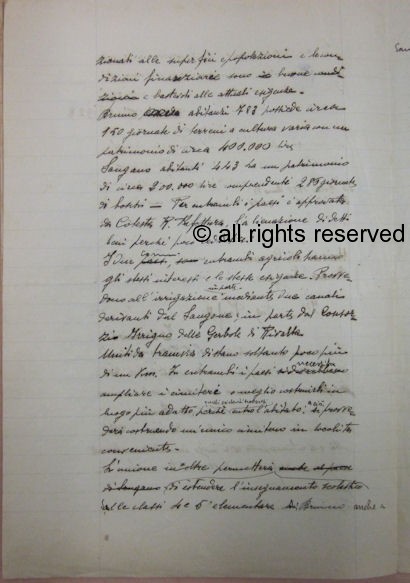 zionati alle superfici e popolazioni e le con
dizioni finanziarie sono in buone condi
zioni e bastanti alle attuali esigenze.
Bruino abitanti 783 possiede circa
150 giornate di terreni a cultura varia con un
patrimonio di circa 400.000 lire
Sangano abitanti 443 ha un patrimonio
di circa 200.000 lire comprendenti 285 giornate
di boschi — Per entrambi i paesi è approvata
da Codesta R. Prefettura l'alienazione di detti
beni perchè poco
© all rights reserved
I due paesi sono entrambi agricoli hanno
gli stessi interessi e le stesse esigenze. Provve
dono all'irrigazione mediante due canali
derivanti dal Sangone, in parte dal Consor
zio Irriguo delle Gerbole di Rivalta
Uniti da tramvia distano soltanto poco più
di un Km. In entrambi i paesi necessita
ampliare i cimiteri o meglio costruirli in
luogo più adatto, perchè entro l'abitato; si provve
derà costruendo un unico cimitero in località
conveniente.
L'unione inoltre permetterà anche al paese
di Sangano di estendere l'insegnamento scolastico
alle classi 4e 5e elementare di Bruino anche a